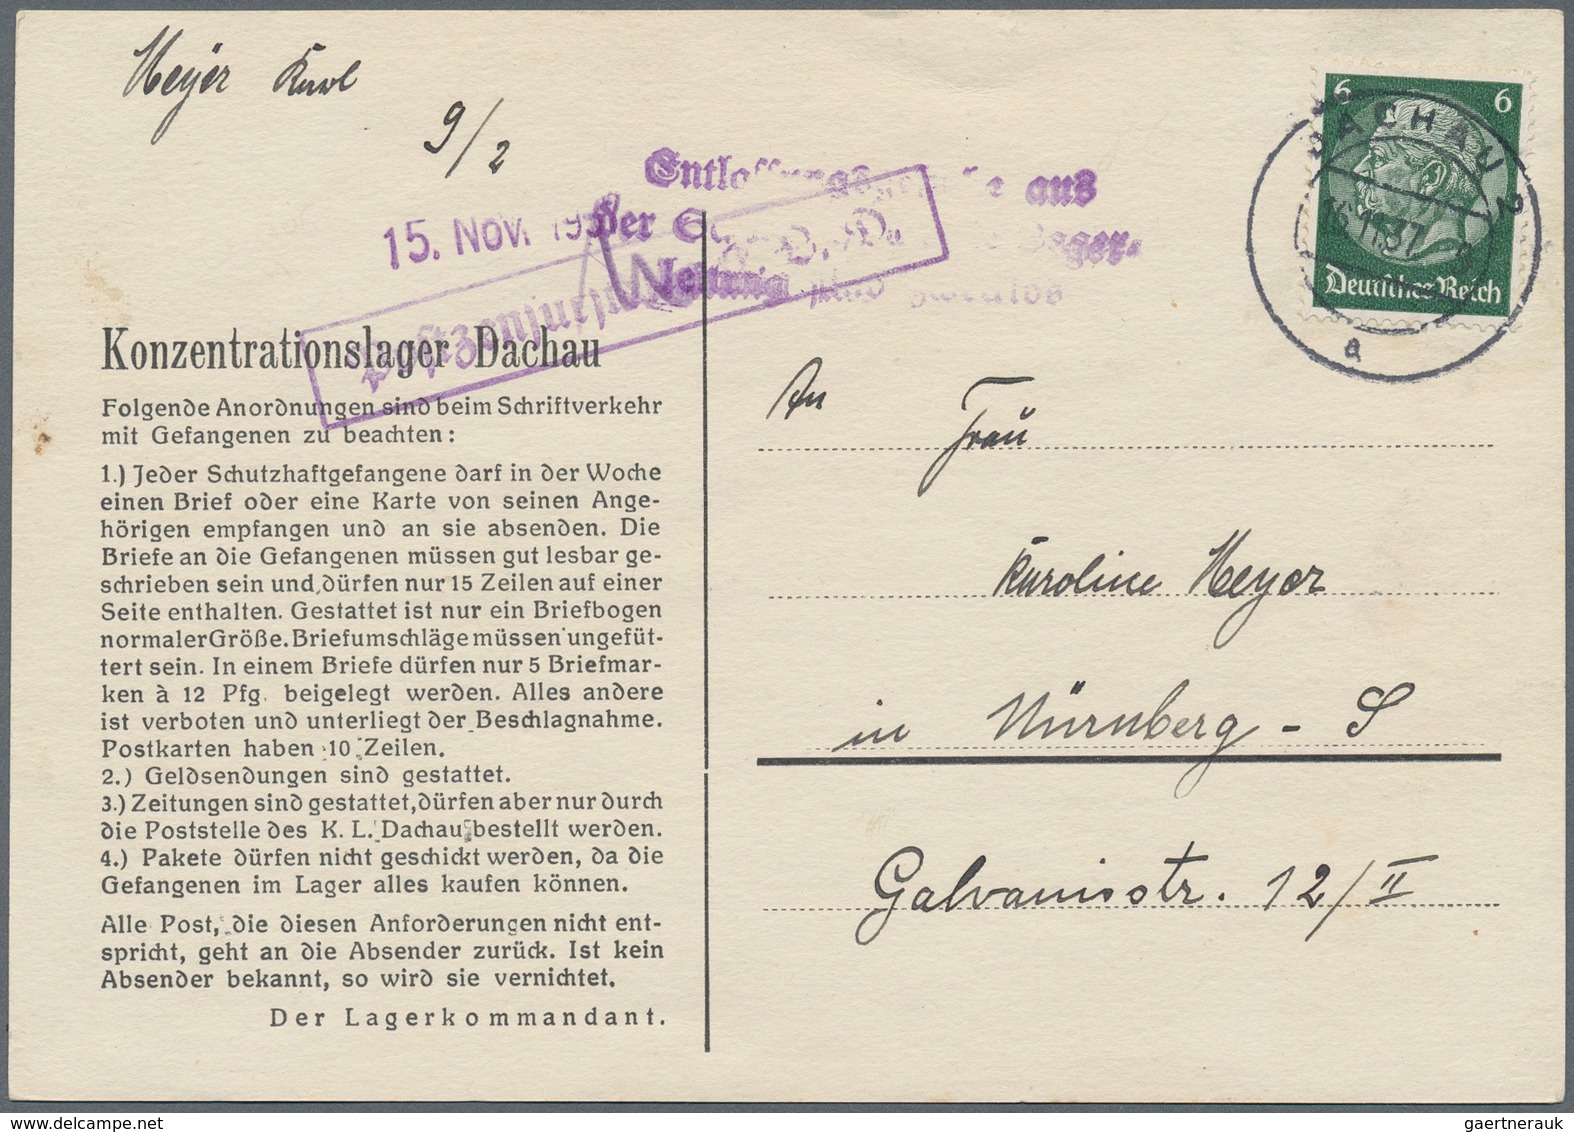 Meyer Karl
9/2
6 6
DACHAU 2
16.11.37
a
Deutsches Reich
Entlassungsgesuche aus
der
Lagerleitung sind zwecklos
15. Nov. 193
Postzensurstelle
Konzentrationslager Dachau
Folgende Anordnungen sind beim Schriftverkehr
mit Gefangenen zu beachten:
1.) Jeder Schutzhaftgefangene darf in der Woche
einen Brief oder eine Karte von seinen Ange-
hörigen empfangen und an sie absenden. Die
Briefe an die Gefangenen müssen gut lesbar ge-
schrieben sein und dürfen nur 15 Zeilen auf einer
Seite enthalten. Gestattet ist nur ein Briefbogen
normaler Größe. Briefumschläge müssen ungefüt-
tert sein. In einem Briefe dürfen nur 5 Briefmar-
ken à 12 Pfg. beigelegt werden. Alles andere
ist verboten und unterliegt der Beschlagnahme.
Postkarten haben 10 Zeilen.
2.) Geldsendungen sind gestattet.
3.) Zeitungen sind gestattet, dürfen aber nur durch
die Poststelle des K. L. Dachau bestellt werden.
4.) Pakete dürfen nicht geschickt werden, da die
Gefangenen im Lager alles kaufen können.
Alle Post, die diesen Anforderungen nicht ent-
spricht, geht an die Absender zurück. Ist kein
Absender bekannt, so wird sie vernichtet.
Der Lagerkommandant.
An
Frau
Karoline Meyer
in Nürnberg - S
Galvanistr. 12/II
gaertnerauk //